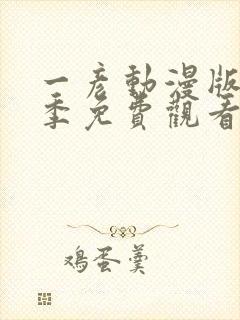 一彦動漫版
季免費觀看
鸡蛋羹